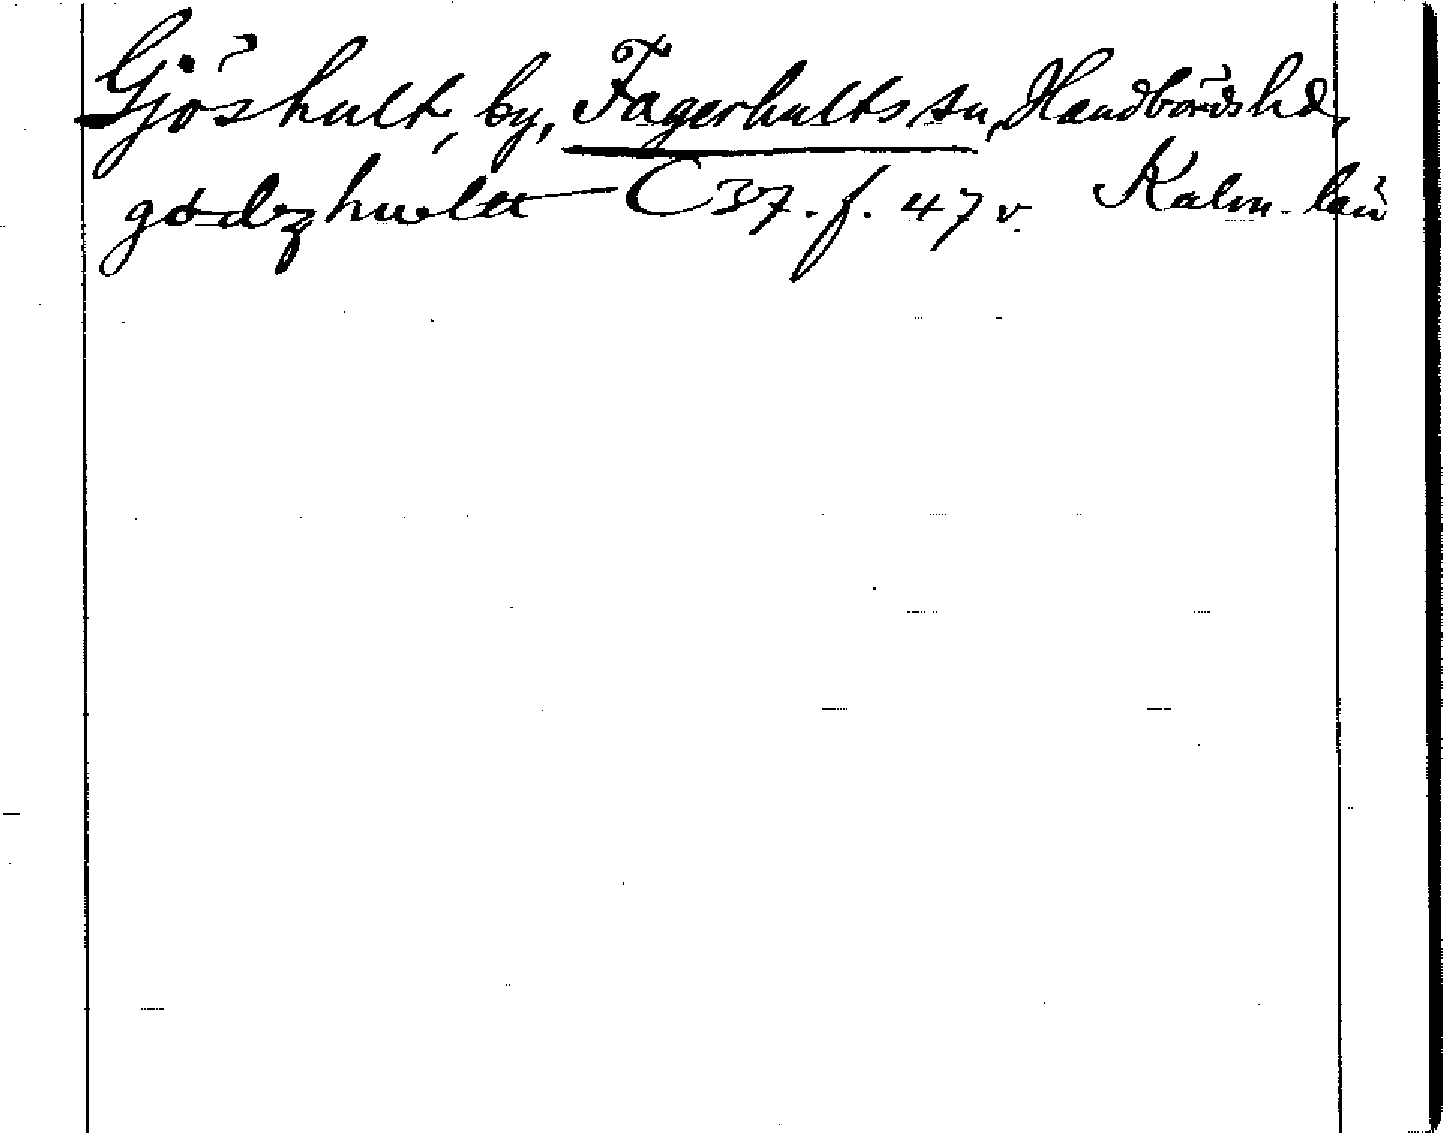 Gjöshult, by, Fagerhults sn, Handbörds hd,
gødzhwltt C 37. f. 47 v. Kalm. län